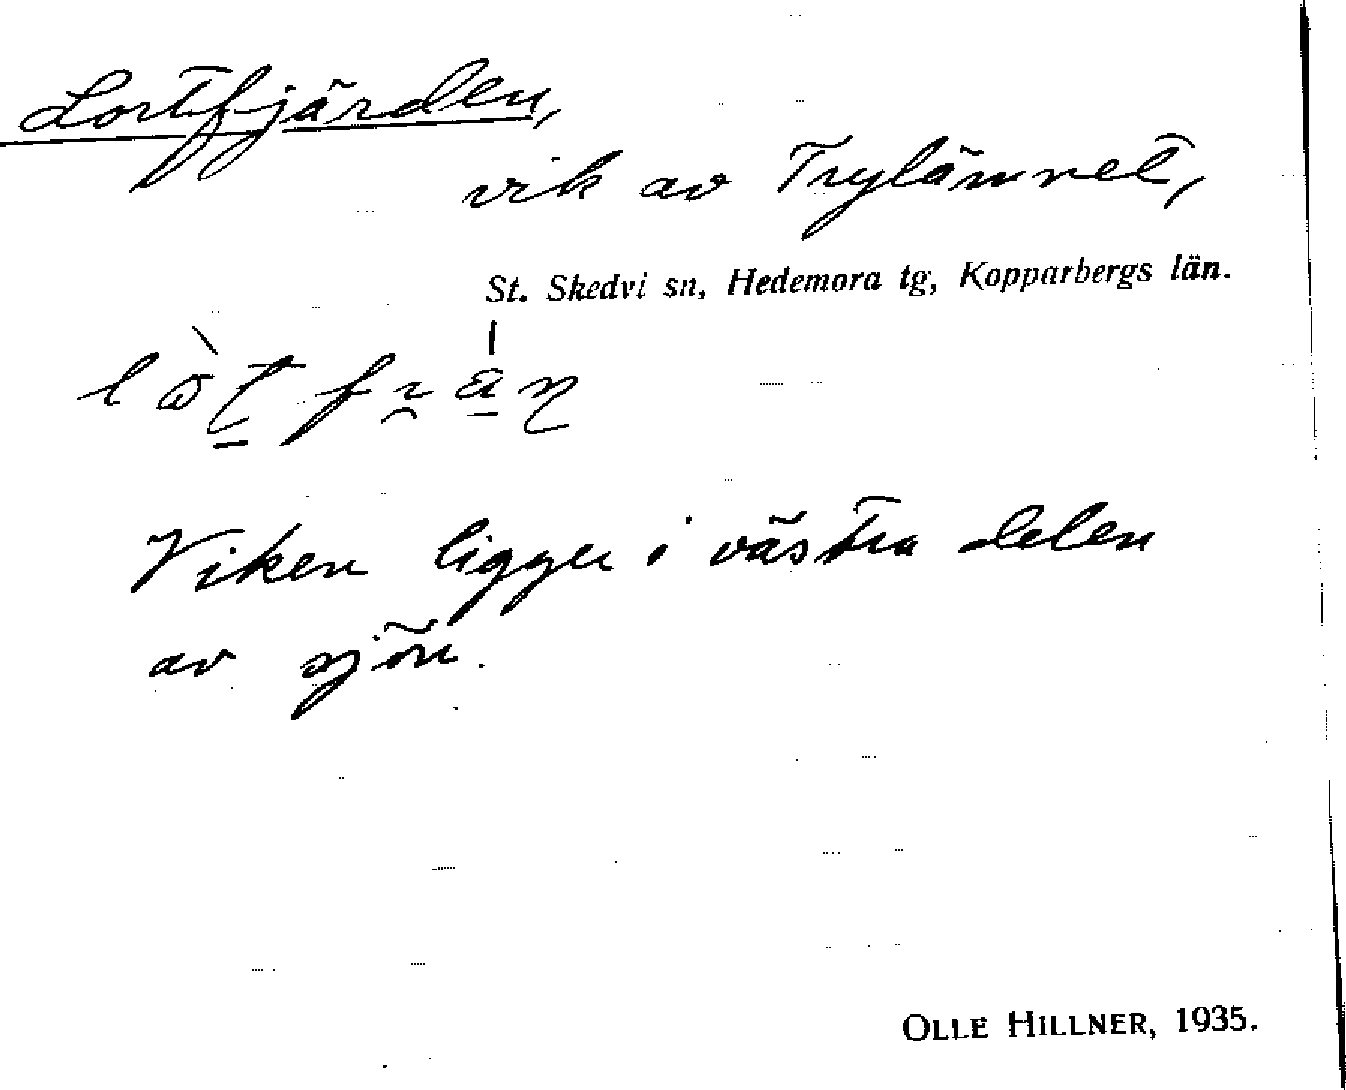 Lortfjärden,
vik av Trylännet,
St. Skedvi sn, Hedemora tg, Kopparbergs län.
Viken ligger i västra delen
av sjön.
OLLE HILLNER, 1935.